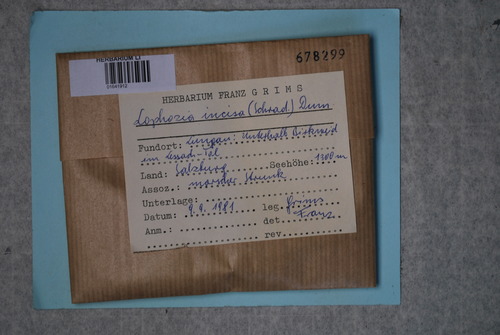 HERBARIUM LI
678299
HERBARIUM FRANZ GRIMS
Lophozia incisa (Schrad.) Dum.
Fundort: Lungau: Unterhalb
im Lessach-Tal
Land: Salzburg Seehöhe: 1200 m
Assoz.: morscher Strunk
Unterlage:
Datum: 9.9.1981 leg. Grims
Anm.: det. Franz
rev.